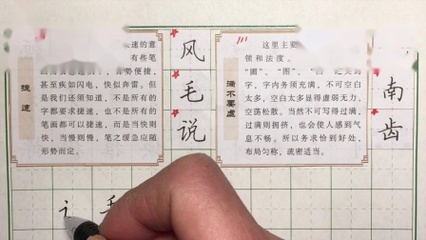 捷速
速的意
有些笔
势便捷，
甚至疾如闪电，快似奔雷。但
是我们还须知道，不是所有的
字都要求捷速，也不是所有的
笔画都可以捷速，而是当快则
快，当慢则慢，笔之缓急应随
形势而定。
风
毛
说
满不要虚
这里主要
领和法度。
字，字内务须充满，不可空白
太多，空白太多显得虚弱无力、
空荡松散。当然不可写得过满，
过满则拥挤，也会使人感到气
息不畅。所以务求恰到好处，
布局匀称，疏密适当。
南
齿